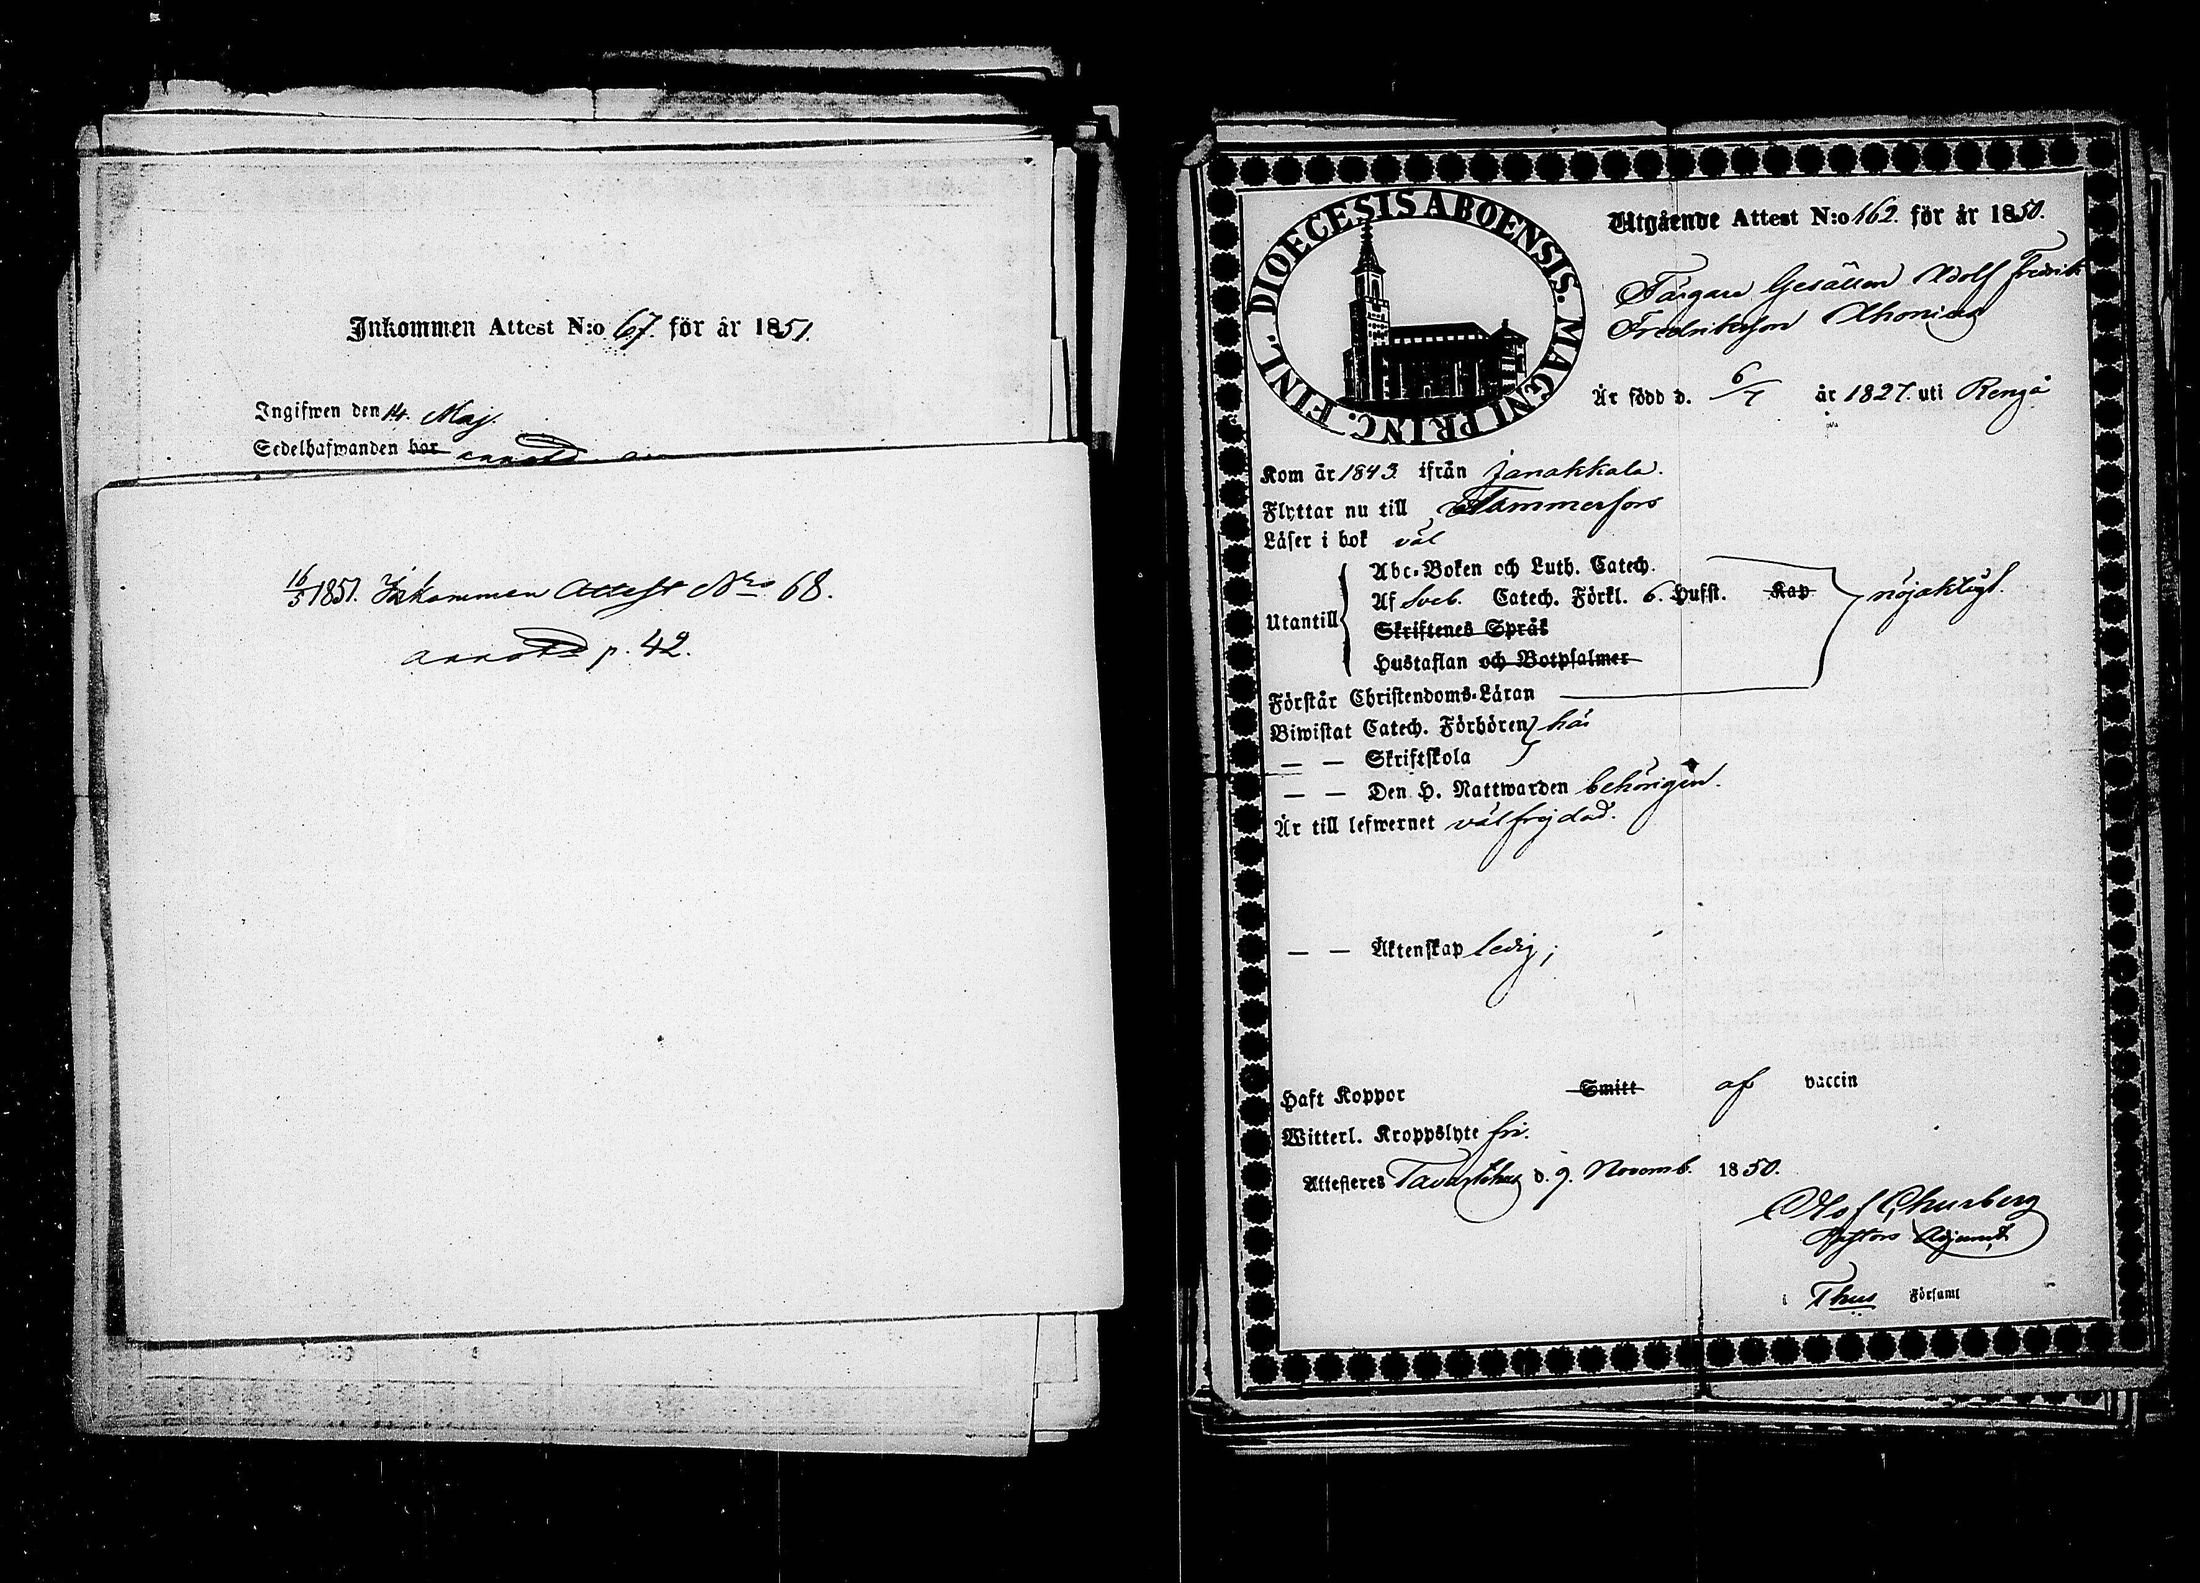 Inkommen Attest N:o 67. för år 1851.
Ingifwen den 14. Maj.
Sedelhafwanden bor annot
16/5 1851. Inkommen Attest Nro 68.
annot p. 42.
DIOECESIS ABOENSIS. MAGNI PRINC. FINL.
Utgående Attest N:o 162. för år 1850.
Färgare Gesällen Adolf Fredrik
Fredriksson
Är född d. 6/7 år 1827. uti Rengo
Kom år 1843 ifrån Janakkala.
Flyttar nu till Tammerfors
Läser i bok väl
Utantill
Abc-Boken och Luth. Catech.
Af Sveb. Catech. Förkl. 6. Hufst. Kap nöjaktigt.
Skriftenes Språk
Hustaflan och Botpsalmer
Förstår Christendoms-Läran
Biwistat Catech. Förhören här
— — Skriftskola
— — Den H. Nattwarden behörigen.
Är till lefwernet välfrejdad.
— — Äktenskap ledig;
Haft Koppor Smitt af vaccin
Witterl. Kroppslyte fri.
Attesteres Tavastehus d. 9. Novemb. 1850.
Olof Churberg
Pastors Adjunct
i Thus Församl